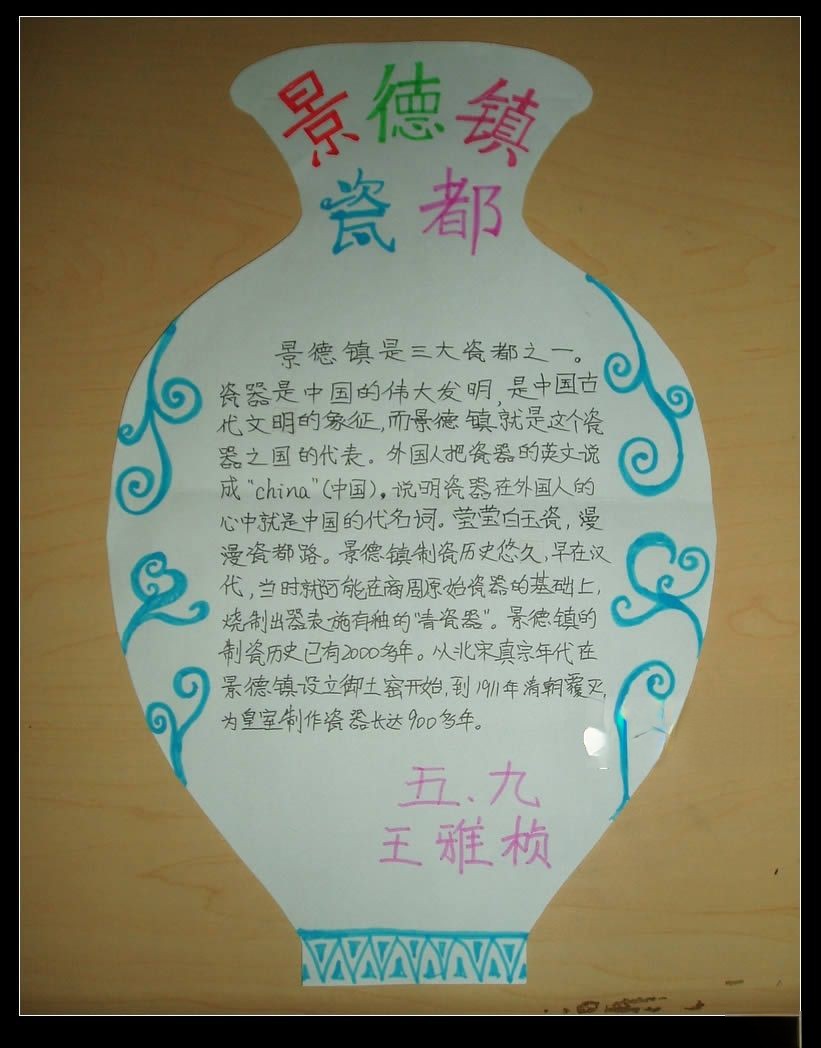 景德镇
瓷都
景德镇是三大瓷都之一。
瓷器是中国的伟大发明，是中国古
代文明的象征，而景德镇就是这个瓷
器之国的代表。外国人把瓷器的英文说
成“china”(中国)。说明瓷器在外国人的
心中就是中国的代名词。莹莹白玉瓷，漫
漫瓷都路。景德镇制瓷历史悠久，早在汉
代，当时就可能在商周原始瓷器的基础上，
烧制出器表施有釉的“青瓷器”。景德镇的
制瓷历史已有2000多年。从北宋真宗年代在
景德镇设立御土窑开始，到1911年清朝覆灭，
为皇室制作瓷器长达900多年。
五、九
王雅桢